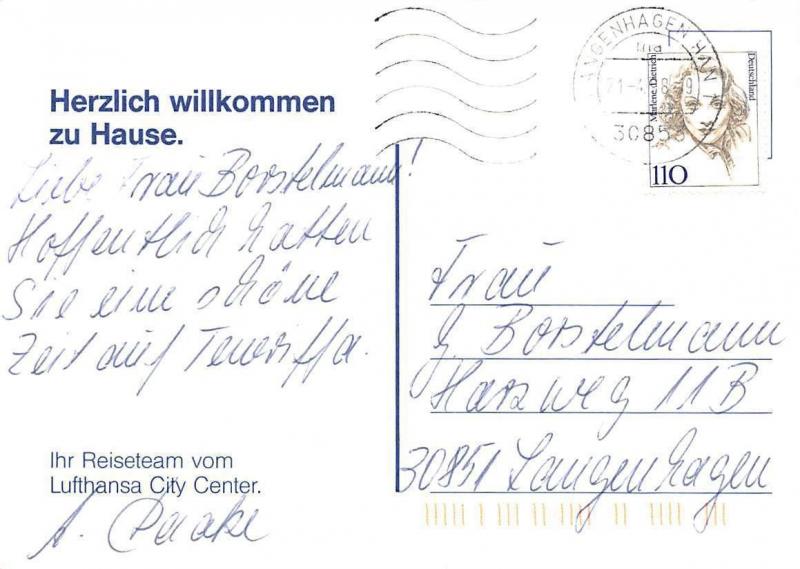 Herzlich willkommen
zu Hause.
Liebe Frau Borstelmann!
Hoffentlich hatten
Sie eine schöne
Zeit auf Teneriffa.
Ihr Reiseteam vom
Lufthansa City Center.
LANGENHAGEN, HAN 1
30853
Marlene Dietrich
Deutschland
110
Frau
Borstelmann
Harzweg 11B
30851 Langenhagen